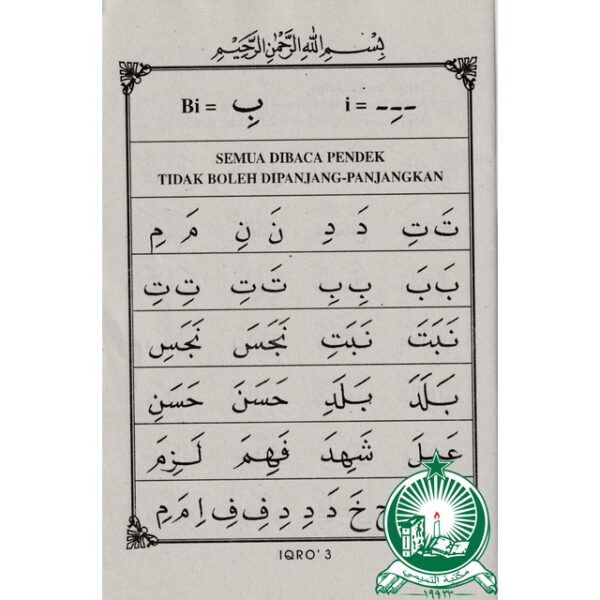 بِسْمِ اللهِ الرَّحْمٰنِ الرَّحِيْمِ
Bi = بِ i = ـِ
SEMUA DIBACA PENDEK
TIDAK BOLEH DIPANJANG-PANJANGKAN
تَ تِ دَ دِ نَ نِ مَ مِ
بَ بَ بِ بِ تَ تِ تِ تِ
نَبَتَ نَبَتِ نَجَسَ نَجَسِ
بَلَدَ بَلَدِ حَسَنَ حَسَنِ
عَمِلَ شَهِدَ فَهِمَ لَزِمَ
خَ دَ دِ دِ فِ فِ اِ مَ مِ
IQRO' 3
مكتبة